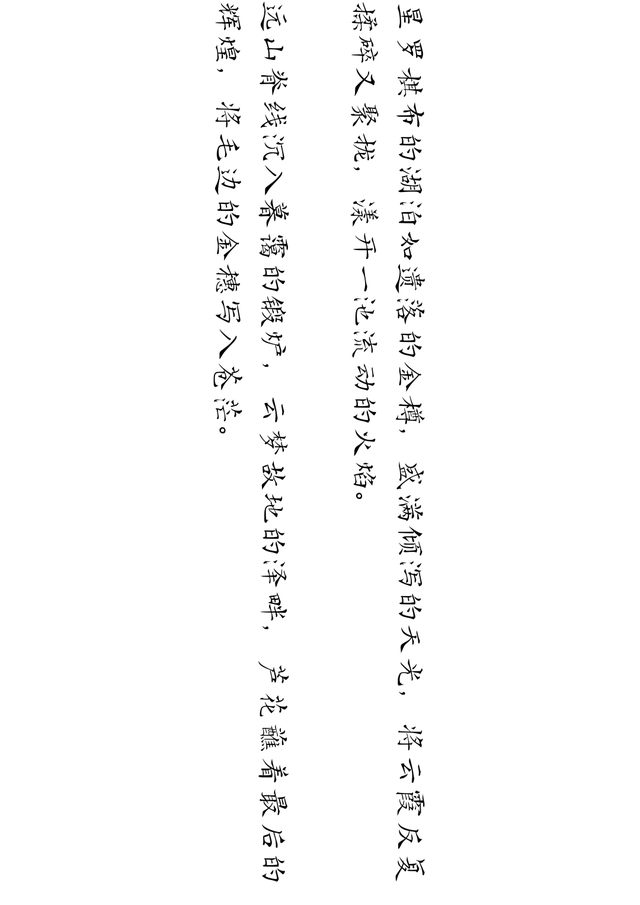 星罗棋布的湖泊如遗落的金樽，盛满倾泻的天光，将云霞反复
揉碎又聚拢，漾开一池流动的火焰。
远山脊线沉入暮霭的锻炉，云梦故地的泽畔，芦花蘸着最后的
辉煌，将毛边的金穗写入苍茫。